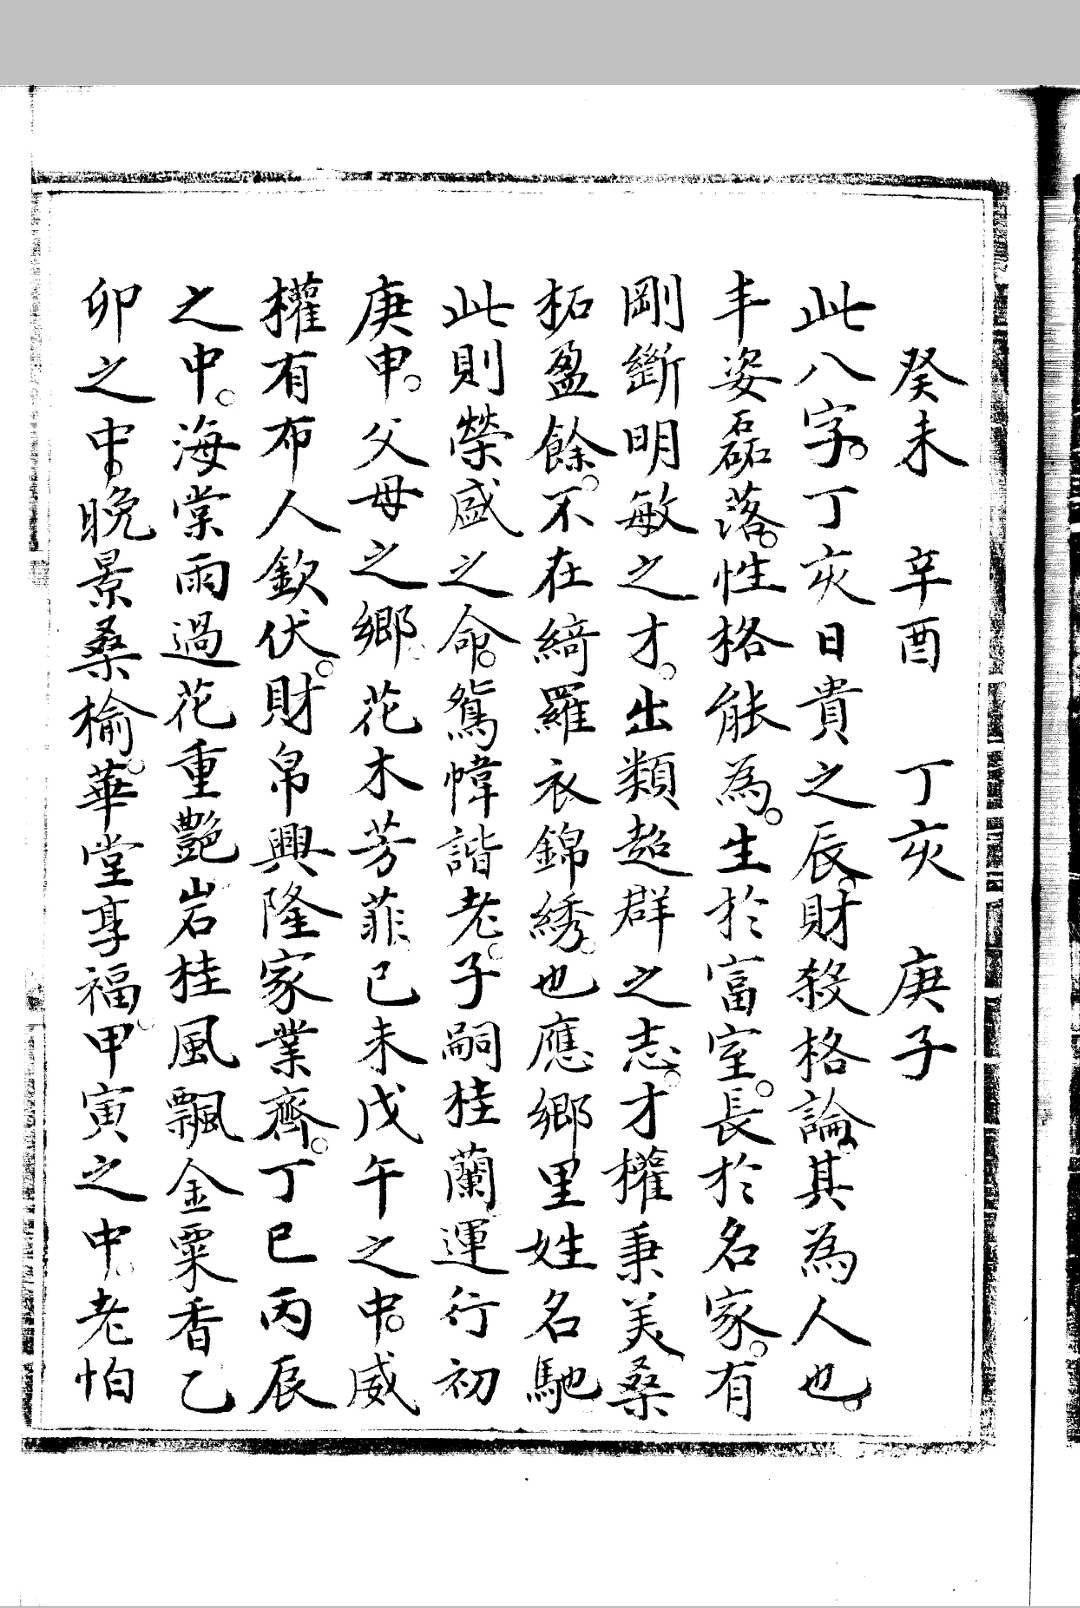 癸未　辛酉　丁亥　庚子
此八字。丁亥日貴之辰。財殺格論。其為人也。
丰姿磊落。性格能為。生於富室。長於名家。有
剛斷明敏之才。出類超群之志。才權秉美桑
柘盈餘。不在綺羅衣錦綉。也應鄉里姓名馳
此則榮盛之命。鴛幃諧老。子嗣桂蘭。運行初
庚申。父母之鄉。花木芳菲。己未戊午之中。威
權有布人欽伏。財帛興隆家業齊。丁巳丙辰
之中。海棠雨過花重艷。岩桂風飄金粟香乙
卯之中。晚景桑榆。華堂享福。甲寅之中。老怕